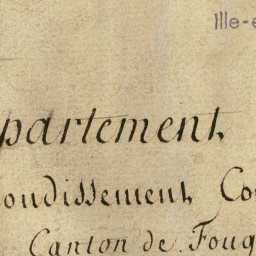 Ille-e
partement
ondissement, Co
Canton de Foug